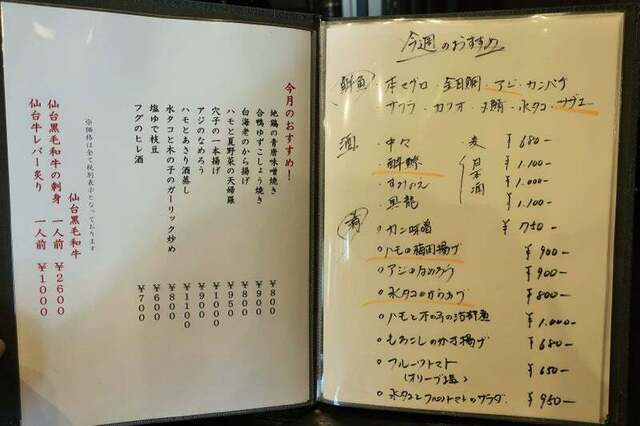 今月のおすすめ！
地鶏の青唐味噌焼き ￥800
合鴨ゆずこしょう焼き ￥900
白海老のから揚げ ￥800
ハモと夏野菜の天婦羅 ￥950
穴子の一本揚げ ￥1000
アジのなめろう ￥900
ハモとあさり酒蒸し ￥1100
水タコと木の子のガーリック炒め ￥800
塩ゆで枝豆 ￥600
フグのヒレ酒 ￥700
※価格は全て税別表示となっております
仙台黒毛和牛
仙台黒毛和牛の刺身 一人前 ￥2600
仙台牛レバー炙り 一人前 ￥1000
今週のおすすめ
鮮魚 本マグロ・金目鯛・アジ・カンパチ
サワラ・カツオ・〆鯖・水タコ・サザエ
酒 ・中々 麦 ￥680-
・酔鯨 日本酒 ￥1.100-
￥1.000-
￥1.100-
肴 ○カニ味噌 ￥750-
○ハモの梅肉揚げ ￥900-
○アジのなめろう ￥900-
○水タコのからあげ ￥800-
○ハモと木の子の ￥1.000-
○もろこしのかき揚げ ￥680-
○フルーツトマト ￥650-
(オリーブ塩)
○水タコとフルーツトマトのサラダ ￥950-